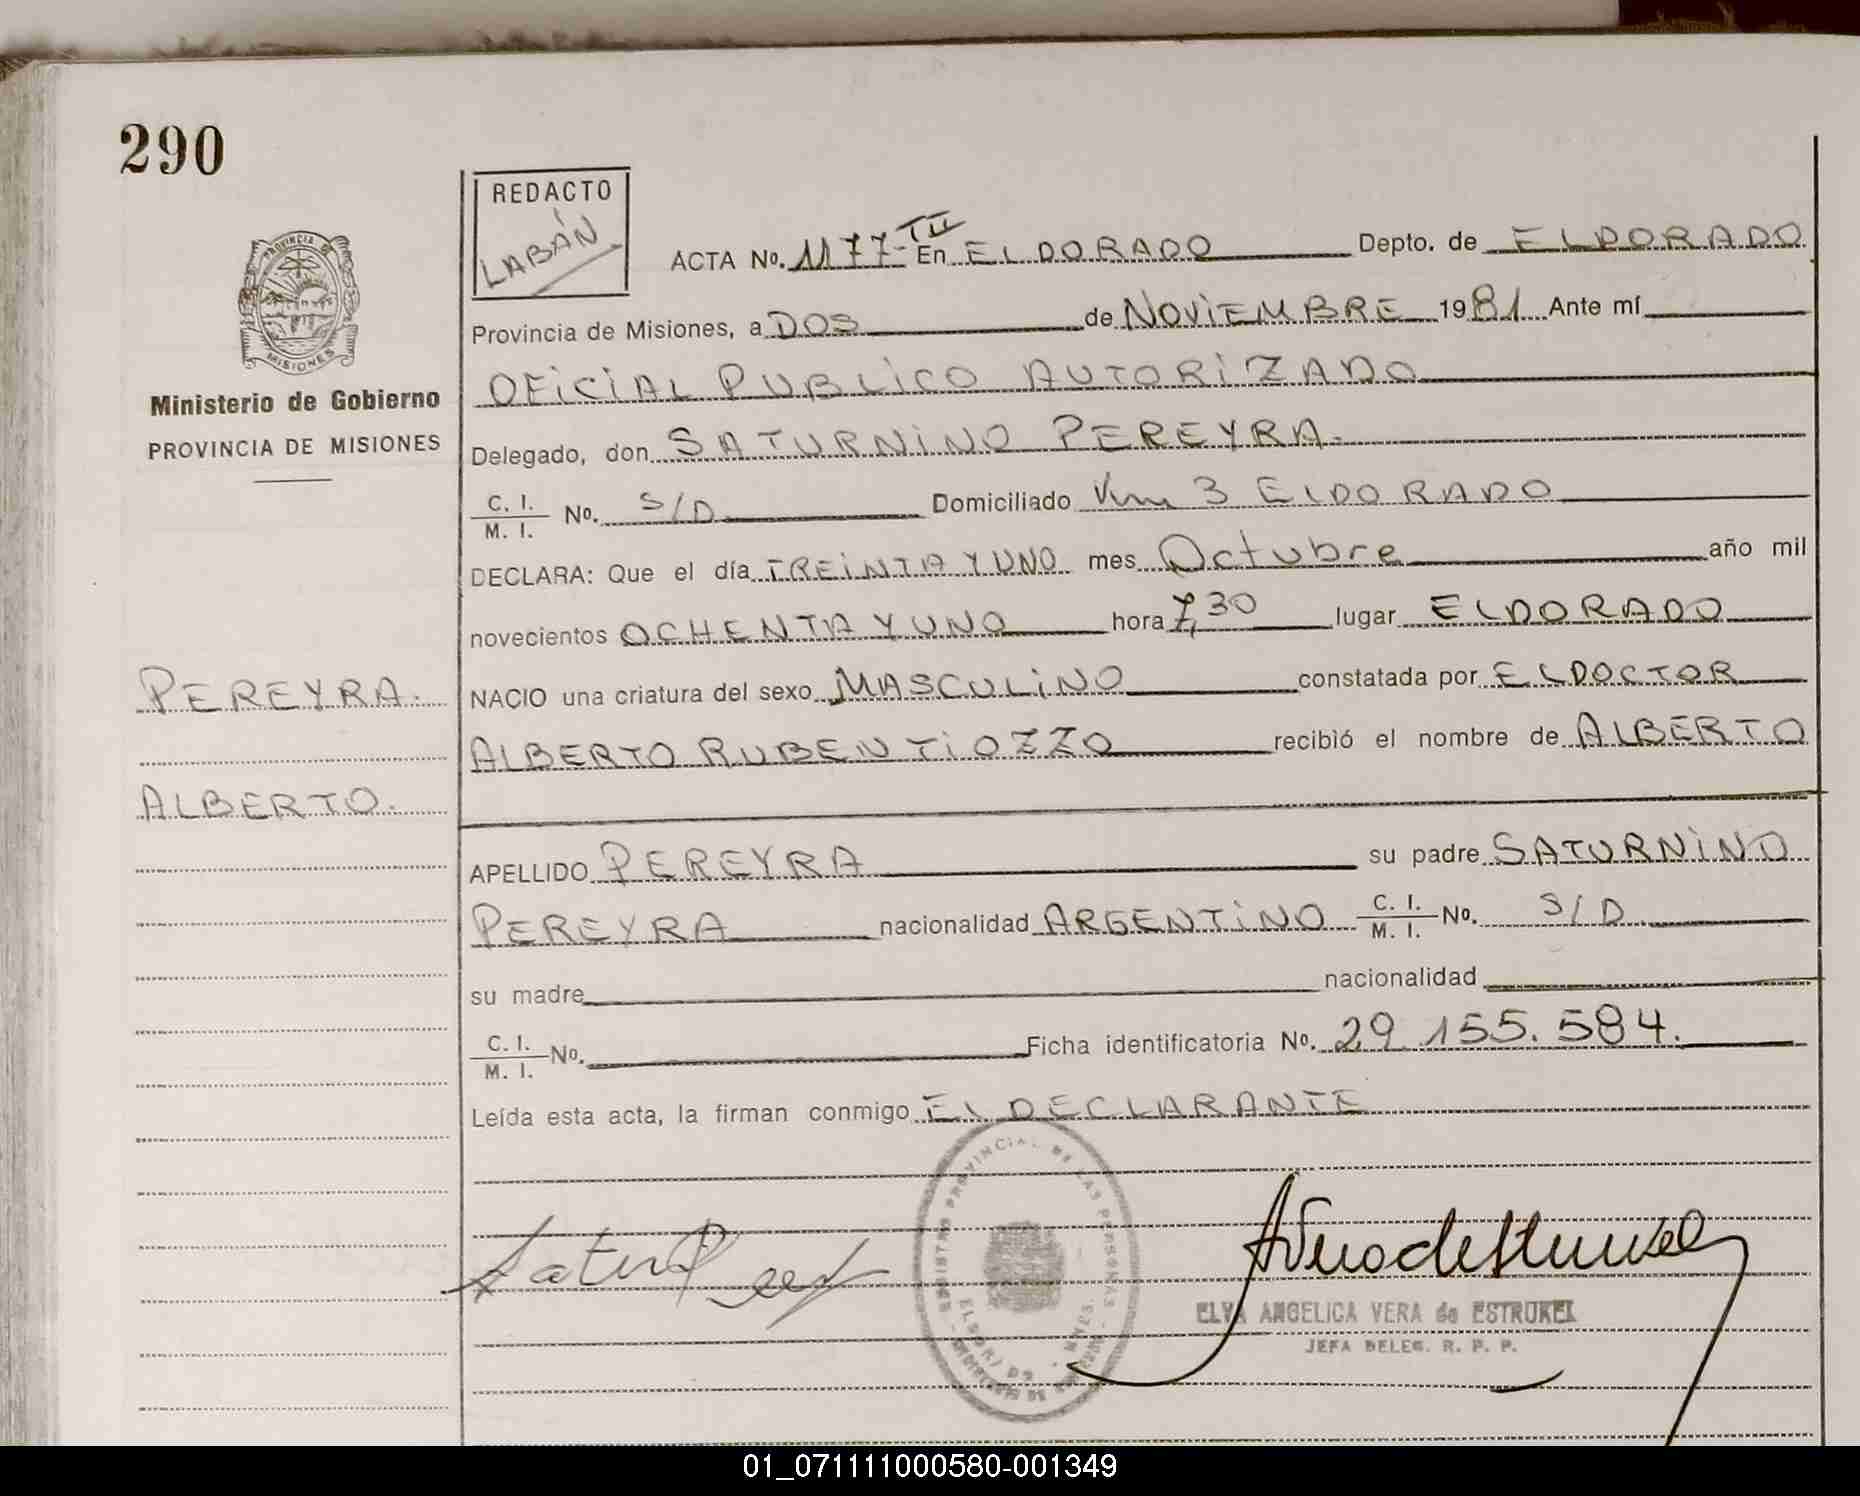 290
REDACTO
LABÁN
ACTA No. 1177-TII En ELDORADO Depto. de ELDORADO
Provincia de Misiones, a DOS de NOViEMBRE 1981 Ante mí
OFiCiAL PUBLiCO AUTORiZADO
Delegado, don SATURNiNO PEREYRA.
C. I. / M. I. No. S/D Domiciliado Km 3 ELDORADO
DECLARA: Que el día TREiNTA Y UNO mes Octubre año mil
novecientos OCHENTA Y UNO hora 7,30 lugar ELDORADO
NACIO una criatura del sexo MASCULiNO constatada por EL DOCTOR
ALBERTO RUBEN TiOZZO recibió el nombre de ALBERTO
APELLIDO PEREYRA su padre SATURNiNO
PEREYRA nacionalidad ARGENTiNO C. I. / M. I. No. S/D
su madre nacionalidad
C. I. / M. I. No. Ficha identificatoria No. 29.155.584.
Leída esta acta, la firman conmigo EL DECLARANTE
PROVINCIA DE
MISIONES
Ministerio de Gobierno
PROVINCIA DE MISIONES
PEREYRA.
ALBERTO.
REGISTRO PROVINCIAL DE LAS PERSONAS
ELDORADO
ELVA ANGELICA VERA de ESTRUKEL
JEFA DELEG. R. P. P.
01_071111000580-001349